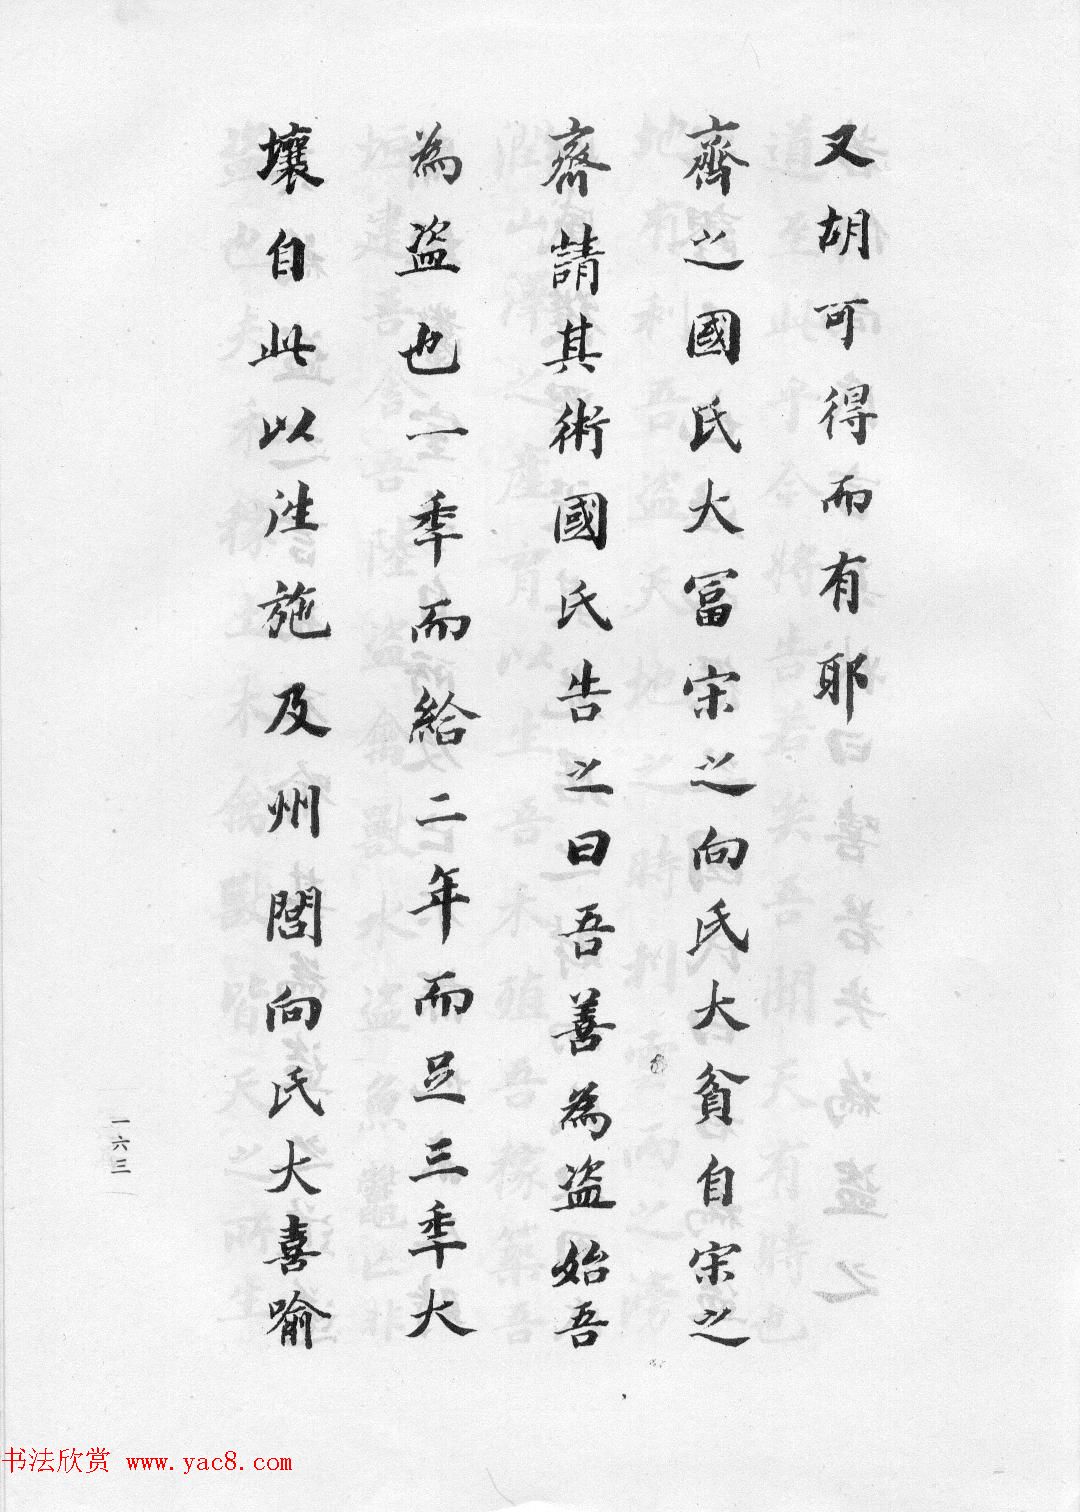 又胡可得而有耶
齊之國氏大冨宋之向氏大貧自宋之
齊請其術國氏告之曰吾善為盜始吾
為盜也一秊而給二年而足三秊大
壤自此以洼施及州閭向氏大喜喻
一六三
书法欣赏 www.yac8.com